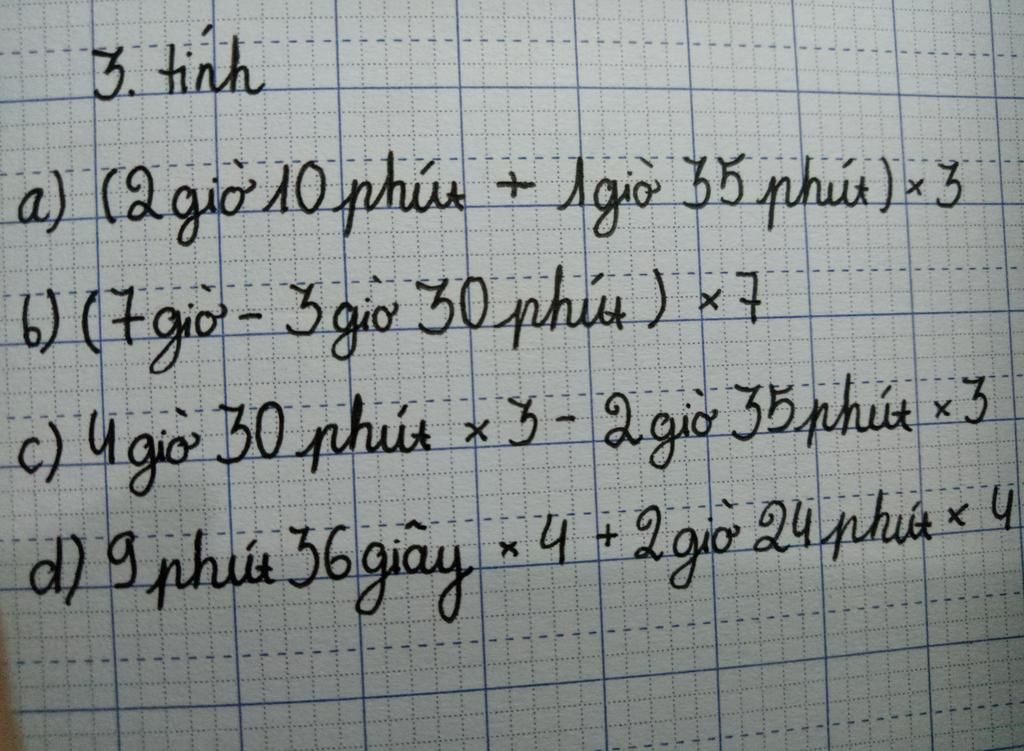 3. tính
a) (2 giờ 10 phút + 1 giờ 35 phút) × 3
b) (7 giờ - 3 giờ 30 phút) × 7
c) 4 giờ 30 phút × 3 - 2 giờ 35 phút × 3
d) 9 phút 36 giây × 4 + 2 giờ 24 phút × 4